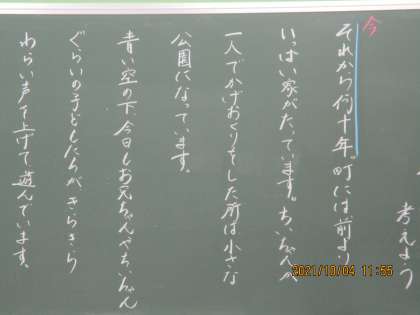 考えよう
今
それから何十年。町には、前より
いっぱい家がたっています。ちいちゃんが
一人でかげおくりをした所は、小さな
公園になっています。
青い空の下、今日もお兄ちゃんやちいちゃん
ぐらいの子どもたちが、きらきら
わらい声を上げて、遊んでいます。
2021/10/04 11:55